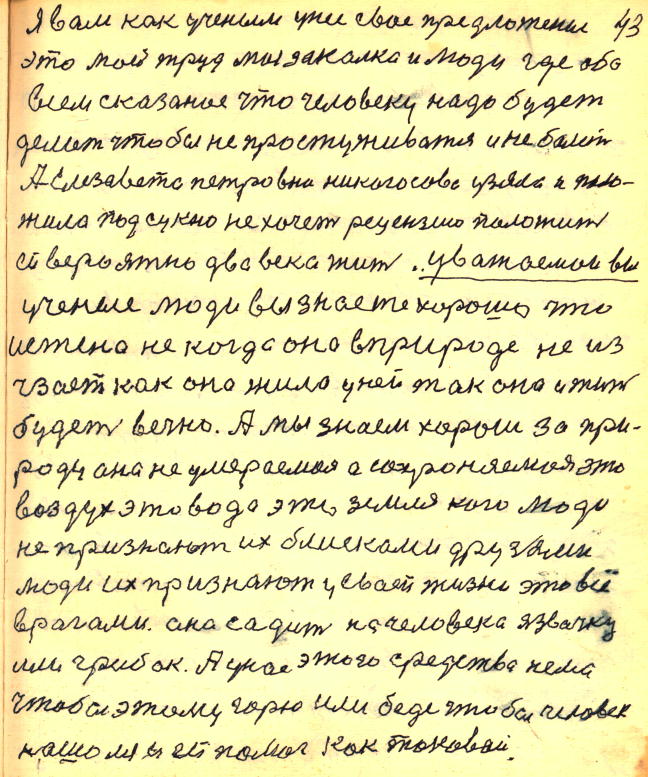 Я вам как ученым уже свое предложение 43
это мой труд моя закалка и люди где обо
всем сказаное что человеку надо будет
делат чтобы не простуживатя и не болет
А Елезавета петровна никогосова узяла и поло-
жила под сукно не хочет рецензию положит
ей вероятно два века жит. уважаемои вы
ученые люди вы знаете хорошо, что
истена не когда она в природе не из
чзает как она жила у ней так она и жит
будет вечно. А мы знаем хорош за при-
роду она не умераемая а сохроняемая это
воздух это вода это, земля кого люди
не признают их блисками друзями
люди их признают у своей жизни это всё
врагами. она садит на человека язвачку
или грибок. А у нас этого средства нема
чтобы этому горю или беде чтобы человек
нашолся и ей помог как токовой.